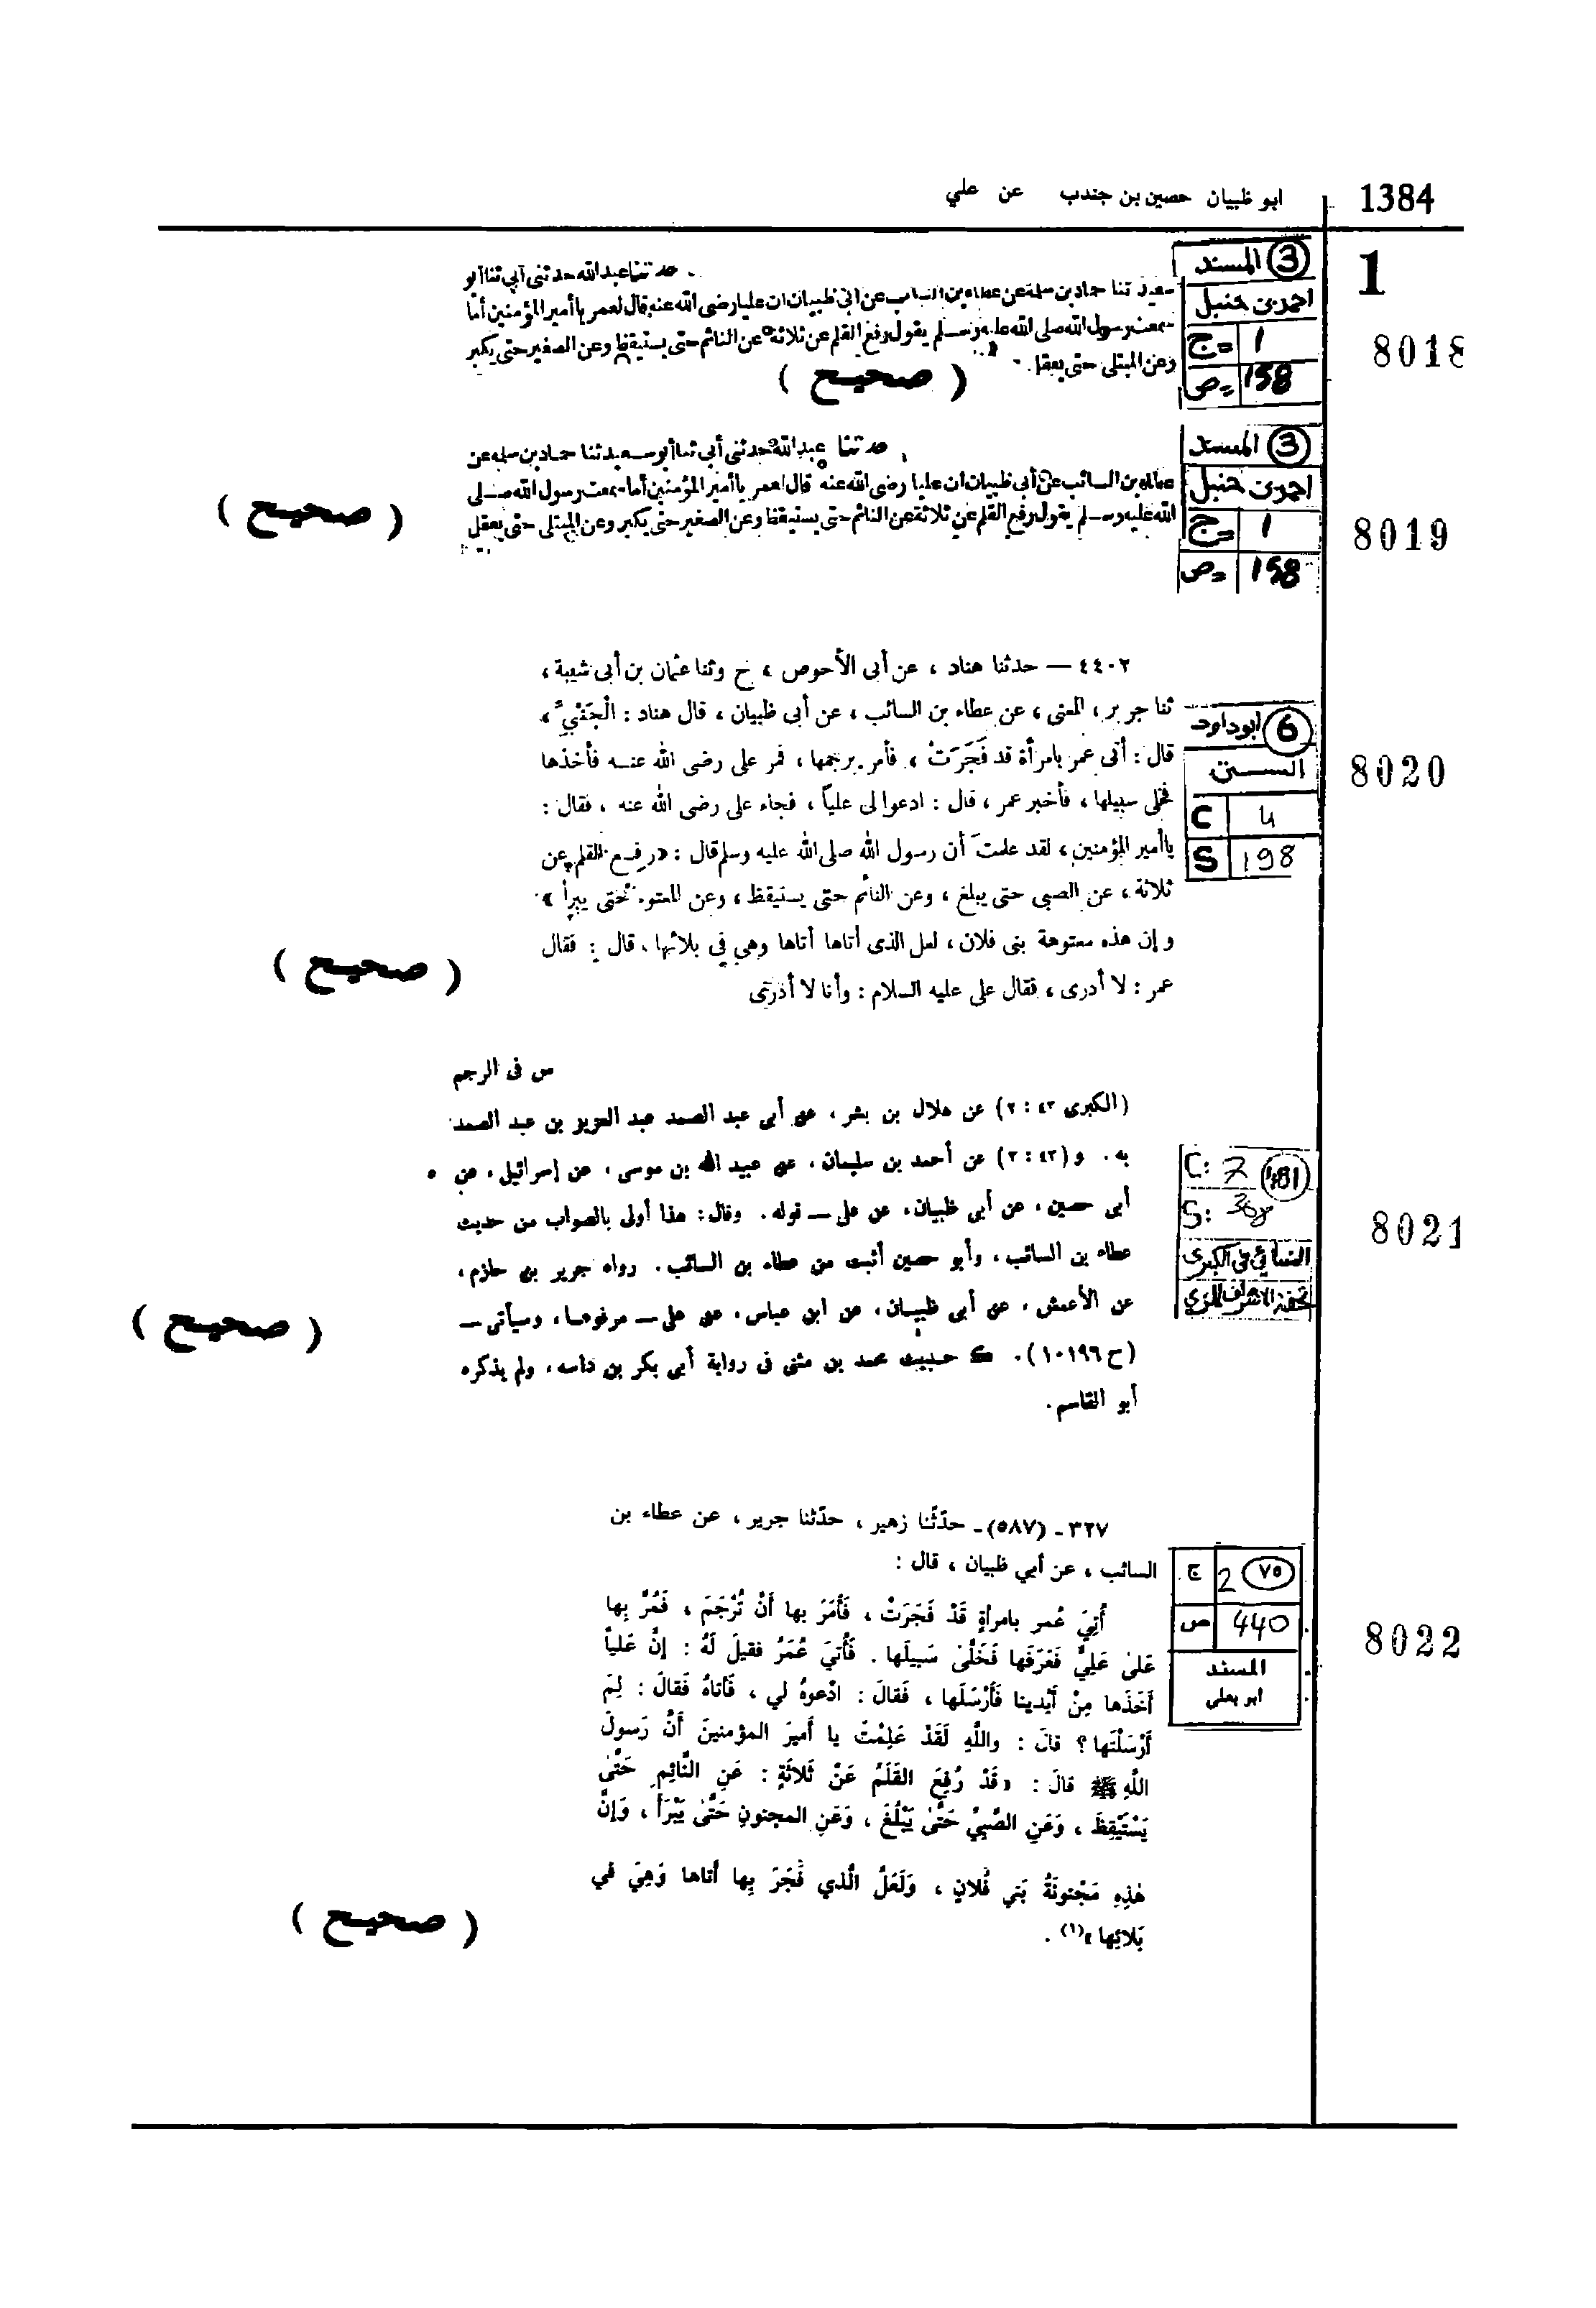 1384
ابو ظبيان حصين بن جندب عن علي
1
8018
3 المسند
احمد بن حنبل
ج= 1
ص= 158
حدثنا عبد الله حدثني أبي ثنا أبو
سعيد ثنا حماد بن سلمة عن عطاء بن السائب عن أبي ظبيان ان عليا رضى الله عنه قال لعمر يا أمير المؤمنين أما
سمعت رسول الله صلى الله عليه وسلم يقول رفع القلم عن ثلاثة عن النائم حتى يستيقظ وعن الصغير حتى يكبر
وعن المبتلى حتى يعقل
( صحيح )
8019
3 المسند
احمد بن حنبل
ج= 1
ص= 158
حدثنا عبد الله حدثني أبي ثنا أبو سعيد ثنا حماد بن سلمة عن
عطاء بن السائب عن أبي ظبيان ان عليا رضى الله عنه قال لعمر يا أمير المؤمنين أما سمعت رسول الله صلى
الله عليه وسلم يقول رفع القلم عن ثلاثة عن النائم حتى يستيقظ وعن الصغير حتى يكبر وعن المبتلى حتى يعقل
( صحيح )
8020
6 ابو داود
السنن
C 4
S 198
٤٤٠٢ — حدثنا هناد ، عن أبى الأحوص ، ح وثنا عثمان بن أبى شيبة ،
ثنا جرير ، المعنى ، عن عطاء بن السائب ، عن أبى ظبيان ، قال هناد : الْجَنْبِيِّ ،
قال : أتى عمر بامرأة قد فَجَرَتْ ، فأمر برجمها ، فمر على رضى الله عنه فأخذها
فخلى سبيلها ، فأخبر عمر ، قال : ادعوا لى علياً ، فجاء على رضى الله عنه ، فقال :
يا أمير المؤمنين ، لقد علمتَ أن رسول الله صلى الله عليه وسلم قال : « رفع القلم عن
ثلاثة ، عن الصبى حتى يبلغ ، وعن النائم حتى يستيقظ ، وعن المعتوه حتى يبرأ »
وإن هذه معتوهة بنى فلان ، لعل الذى أتاها أتاها وهي فى بلائها ، قال : فقال
عمر : لا أدرى ، فقال على عليه السلام : وأنا لا أدرى
( صحيح )
8021
C: 7 481
S: 368
النسائي في الكبرى
تحفة الاشراف للمزي
س فى الرجم
(الكبرى ٤٣ : ٢) عن هلال بن بشر ، عن أبى عبد الصمد عبد العزيز بن عبد الصمد
به . و (٤٣ : ٣) عن أحمد بن سليمان ، عن عبيد الله بن موسى ، عن إسرائيل ، عن
أبى حصين ، عن أبى ظبيان ، عن على — قوله . وقال : هذا أولى بالصواب من حديث
عطاء بن السائب ، وأبو حصين أثبت من عطاء بن السائب . رواه جرير بن حازم ،
عن الأعمش ، عن أبى ظبيان ، عن ابن عباس ، عن على — مرفوعا ، وسيأتى —
(ح ١٠١٩٦) . ك حديث محمد بن مثنى فى رواية أبى بكر بن داسه ، ولم يذكره
أبو القاسم .
( صحيح )
8022
ج 2 ٧٥
ص 440
المسند
ابو يعلى
٣٢٧ـ (٥٨٧)ـ حدّثنا زهير ، حدّثنا جرير ، عن عطاء بن
السائب ، عن أبي ظبيان ، قال :
أُتِيَ عُمر بامرأةٍ قَدْ فَجَرَتْ ، فَأَمَرَ بها أَنْ تُرْجَمَ ، فَمُرَّ بِها
عَلىٰ عَلِيٍّ فَعَرَفَها فَخَلَّىٰ سَبيلَها . فَأُتيَ عُمَرُ فقيلَ لَهُ : إنَّ عَلياً
أَخَذَها مِنْ أَيْدينا فَأَرْسَلَها ، فَقالَ : ادْعوهُ لي ، فَأتاهُ فَقالَ : لِمَ
أَرْسَلْتَها ؟ قالَ : واللَّهِ لَقَدْ عَلِمْتَ يا أَميرَ المؤمنينَ أَنَّ رَسولَ
اللَّهِ ﷺ قالَ : « قَدْ رُفِعَ القَلَمُ عَنْ ثَلاثَةٍ : عَنِ النَّائِمِ حَتَّىٰ
يَسْتَيْقِظَ ، وَعَنِ الصَّبِيِّ حَتَّىٰ يَبْلُغَ ، وَعَنِ المجنونِ حَتَّىٰ يَبْرَأَ ، وَإنَّ
هٰذِهِ مَجْنونَةُ بَني فُلانٍ ، وَلَعَلَّ الَّذي فَجَرَ بِها أَتاها وَهِيَ في
بَلائِها »(١) .
( صحيح )